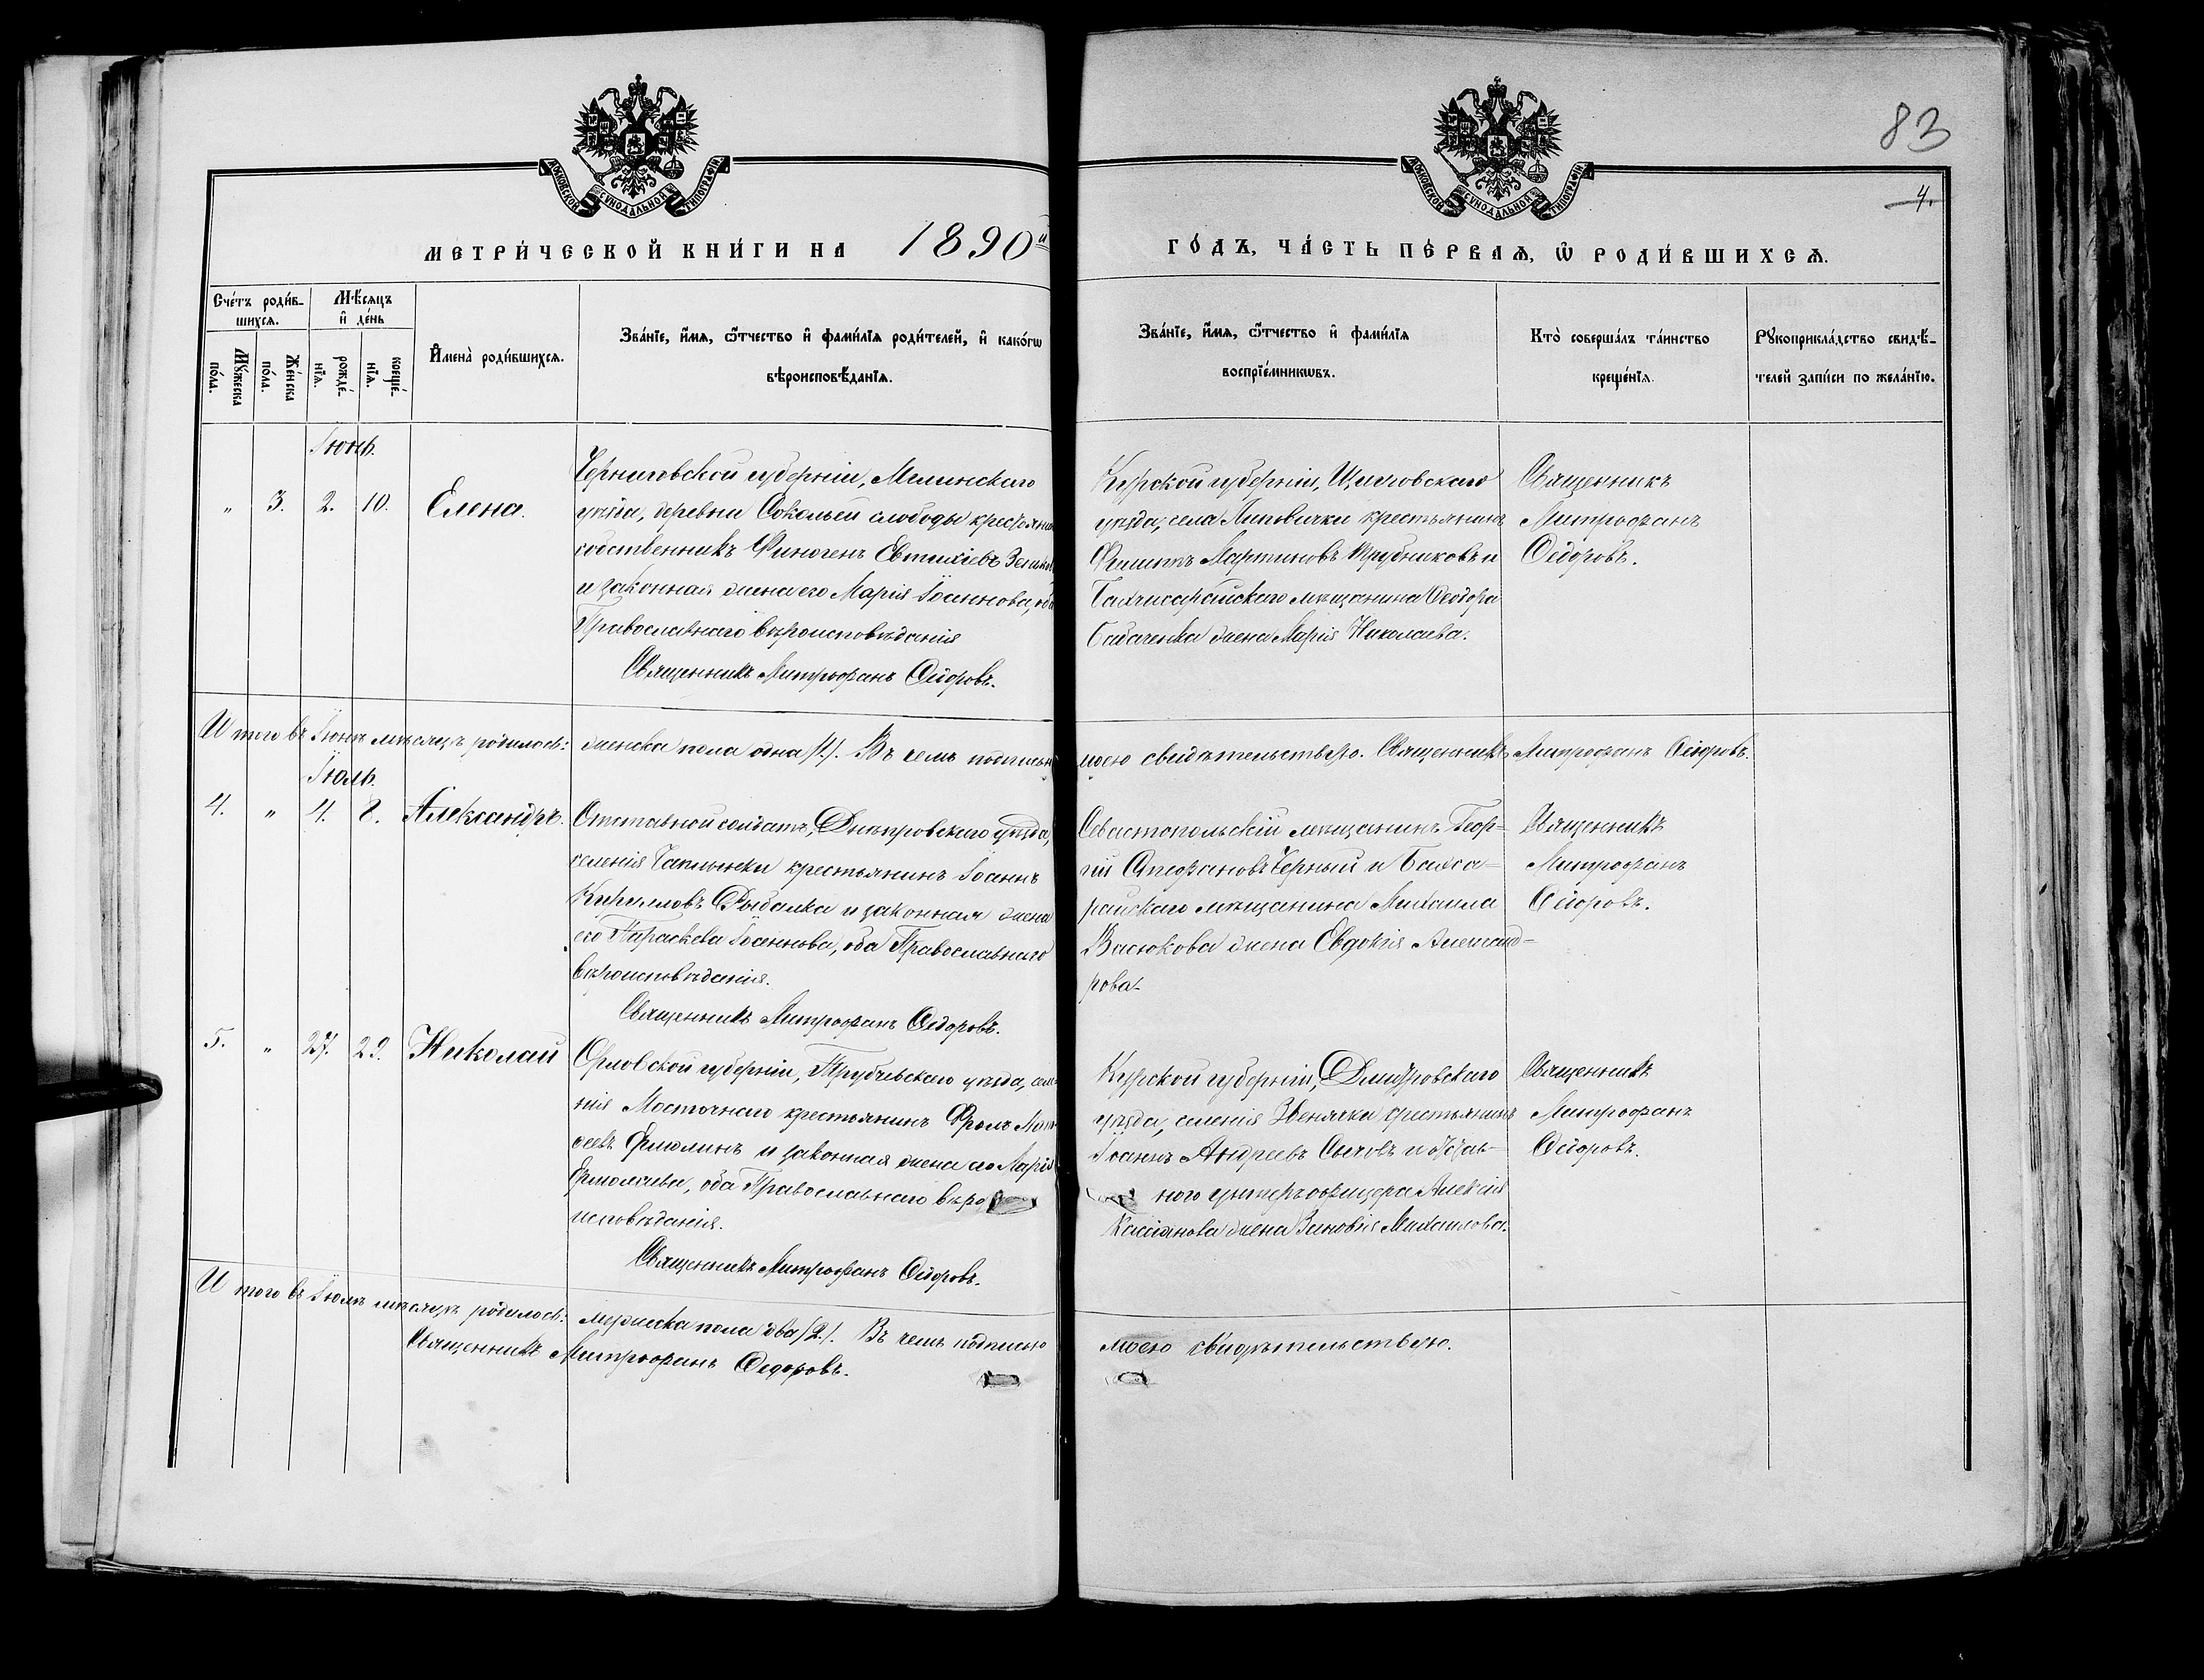 83
4.
МОСКОВСКОЙ СѴНОДАЛЬНОЙ ТИПОГРАФІИ
МОСКОВСКОЙ СѴНОДАЛЬНОЙ ТИПОГРАФІИ
МЕТРИ́ЧЕСКОЙ КНИ́ГИ НА 1890й
ГО́ДЪ, ЧА́СТЬ ПЕ́РВАѦ, Ѿ РОДИ́ВШИХСѦ.
Сче́тъ роди́в-
шихсѧ.
Мꙋ́жеска по́ла.
Же́нска по́ла.
Мѣ́сѧцъ
и҆ де́нь
рожде́-нїѧ.
креще́-нїѧ.
И҆мена̀ роди́вшихсѧ.
Зва́нїе, и҆́мѧ, ѻ҆́тчество и҆ фами́лїѧ роди́телей, и҆ како́гѡ
вѣроисповѣ́данїѧ.
Зва́нїе, и҆́мѧ, ѻ҆́тчество и҆ фами́лїѧ
воспрїе́мникѡвъ.
Кто̀ соверша́лъ та́инство
креще́нїѧ.
Рꙋкоприкла́дство свидѣ́-
телей за́писи по жела́нїю.
Іюнь.
" 3. 2. 10. Елена.
Черниговской губерніи, Мглинскаго
уѣзда, деревни Сокольей слободы крестьянинъ
собственникъ Финогенъ Евтихіевъ
и законная жена его Марія Іоаннова, оба
Православнаго вѣроисповѣданія
Священникъ Митрофанъ Ѳедоровъ.
Курской губерніи, Щигровскаго
уѣзда, села Липовчки крестьянинъ
Филиппъ Мартиновъ Трубниковъ и
Бахчисарайскаго мѣщанина Ѳеодора
жена Марія Николаева.
Священникъ
Митрофанъ
Ѳедоровъ.
Итого въ Іюнѣ мѣсяцѣ родилось: женска пола одна /1/. Въ чемъ подписью моею свидѣтельствую. Священникъ Митрофанъ Ѳедоровъ.
Іюль.
4. " 4. 8. Александръ.
Отставной солдатъ, Днѣпровскаго уѣзда,
селенія Чаплынки крестьянинъ Іоаннъ
Кирилловъ Рыбалка и законная жена
его Параскева Іоаннова, оба Православнаго
вѣроисповѣданія.
Священникъ Митрофанъ Ѳедоровъ.
Севастопольскій мѣщанинъ Геор-
гій Стефановъ Черный и Бахчса-
райскаго мѣщанина Михаила
Васюкова жена Евдокія Александ-
рова.
Священникъ
Митрофанъ
Ѳедоровъ.
5. " 27. 29. Николай
Орловской губерніи, Трубчевскаго уѣзда, селе-
нія Мосточнаго крестьянинъ Фролъ Мои-
сеевъ Ермолинъ и законная жена его Марія
Ермолаева, оба Православнаго вѣро-
исповѣданія.
Священникъ Митрофанъ Ѳедоровъ.
Курской губерніи, Дмитровскаго
уѣзда, селенія Звенячки крестьянинъ
Іоаннъ Андреевъ Сычовъ и
ного унтеръ офицера Алексія
Кассіанова жена Зиновія Михаилова.
Священникъ
Митрофанъ
Ѳедоровъ.
Итого въ Іюлѣ мѣсяцѣ родилось: мужеска пола два /2/. Въ чемъ подписью моею свидѣтельствую.
Священникъ Митрофанъ Ѳедоровъ.